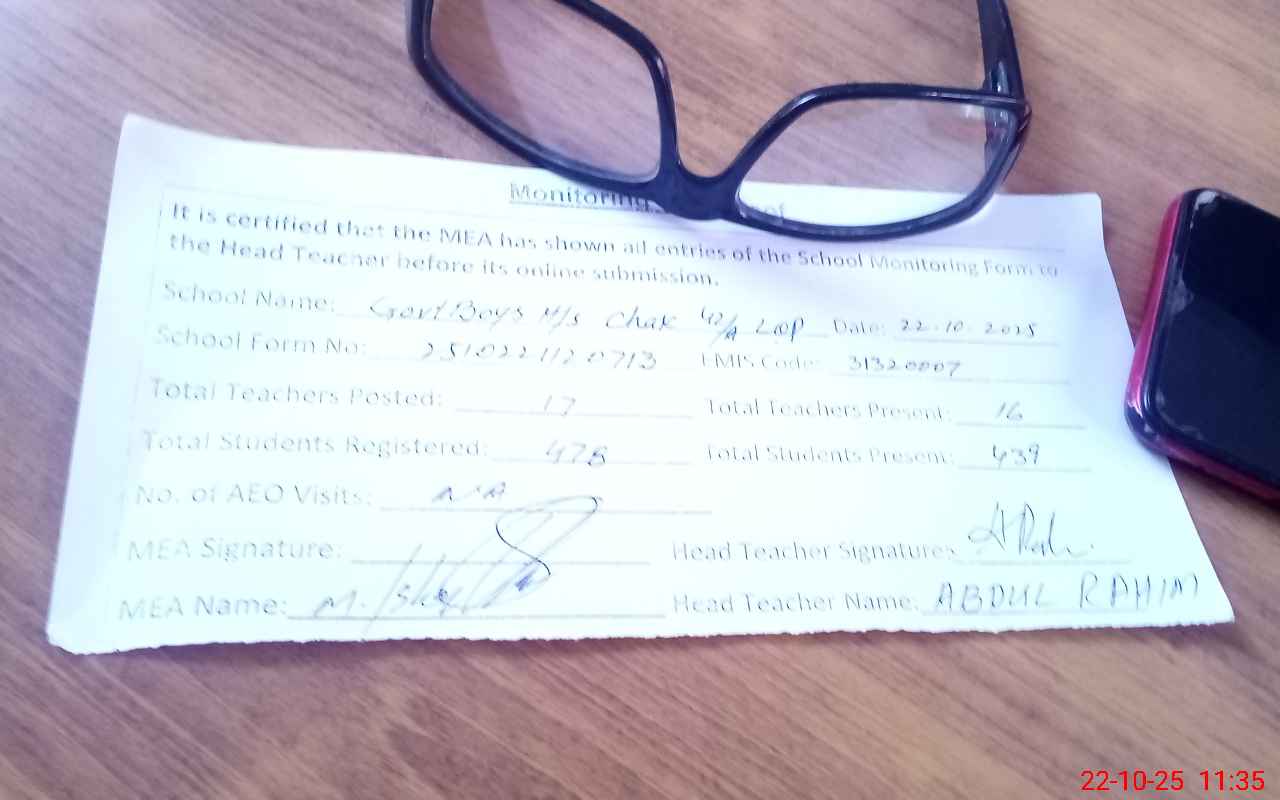 Monitoring
It is certified that the MEA has shown all entries of the School Monitoring Form to
the Head Teacher before its online submission.
School Name: Govt Boys M/s Chak 42/A LQP Date: 22-10-2025
School Form No: 2510221120713 EMIS Code: 31320007
Total Teachers Posted: 17 Total Teachers Present: 16
Total Students Registered: 478 Total Students Present: 439
No. of AEO Visits: NA
MEA Signature: Head Teacher Signature:
MEA Name: M. Head Teacher Name: ABDUL RAHIM
22-10-25 11:35